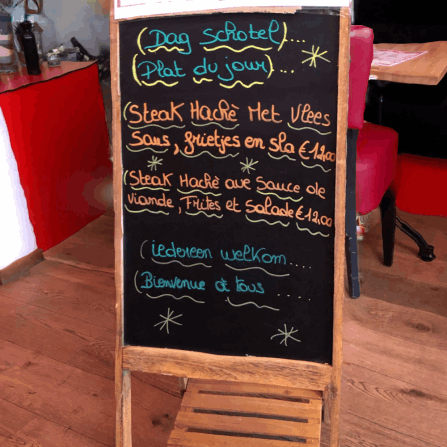 (Dag schotel)...
(Plat du jour)...
(Steak Hachè Met Vlees
Saus, frietjes en sla €12,00
(Steak Hachè ave Sauce de
viande, Frites et Salade €12,00
(iedereen welkom....
(Bienvenue et tous .....